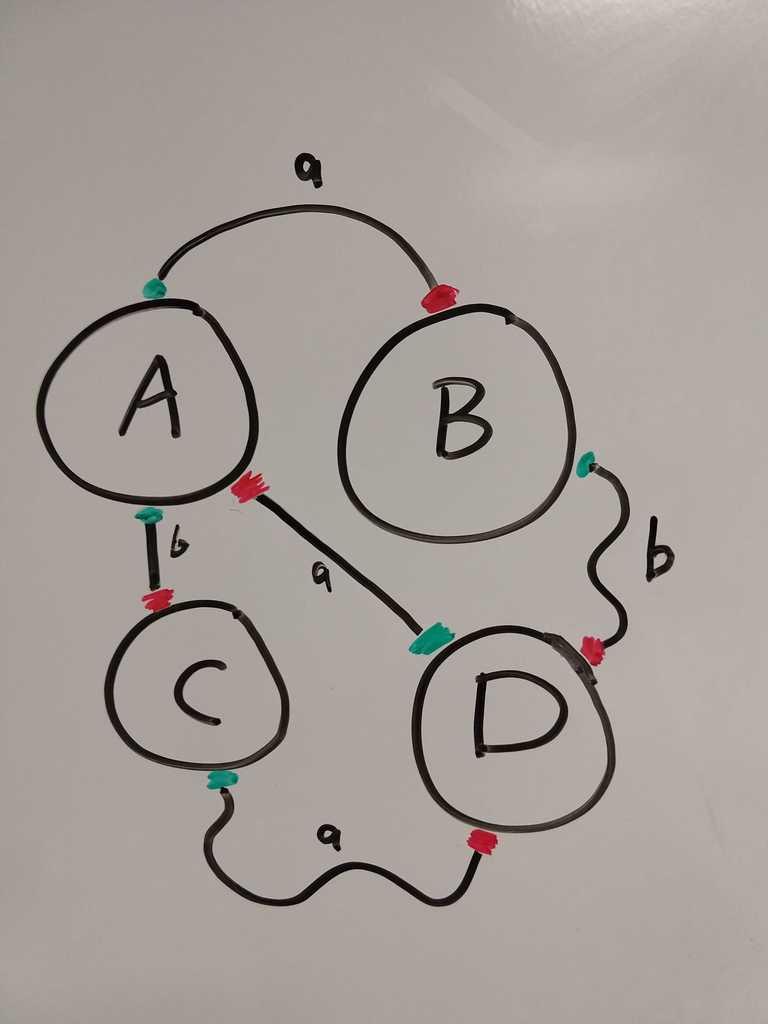 a
A
B
b
a
b
C
D
a